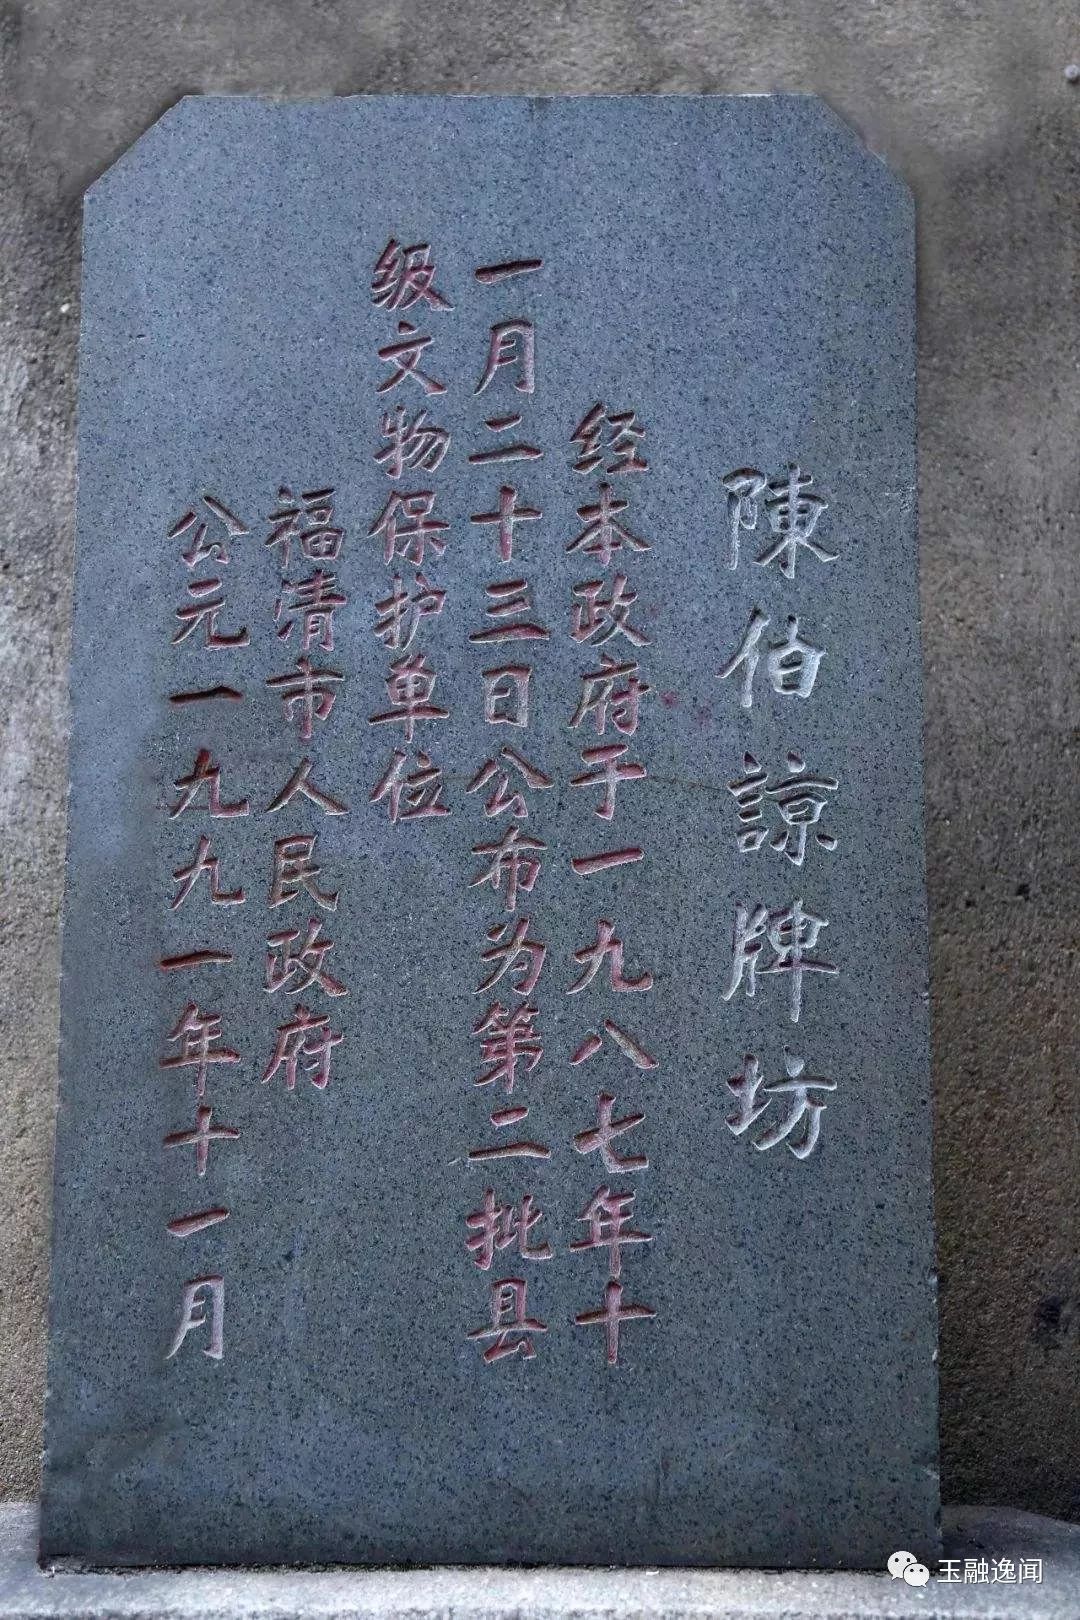 陳伯諒牌坊
经本政府于一九八七年十
一月二十三日公布为第二批县
级文物保护单位
福清市人民政府
公元一九九一年十一月
玉融逸闻